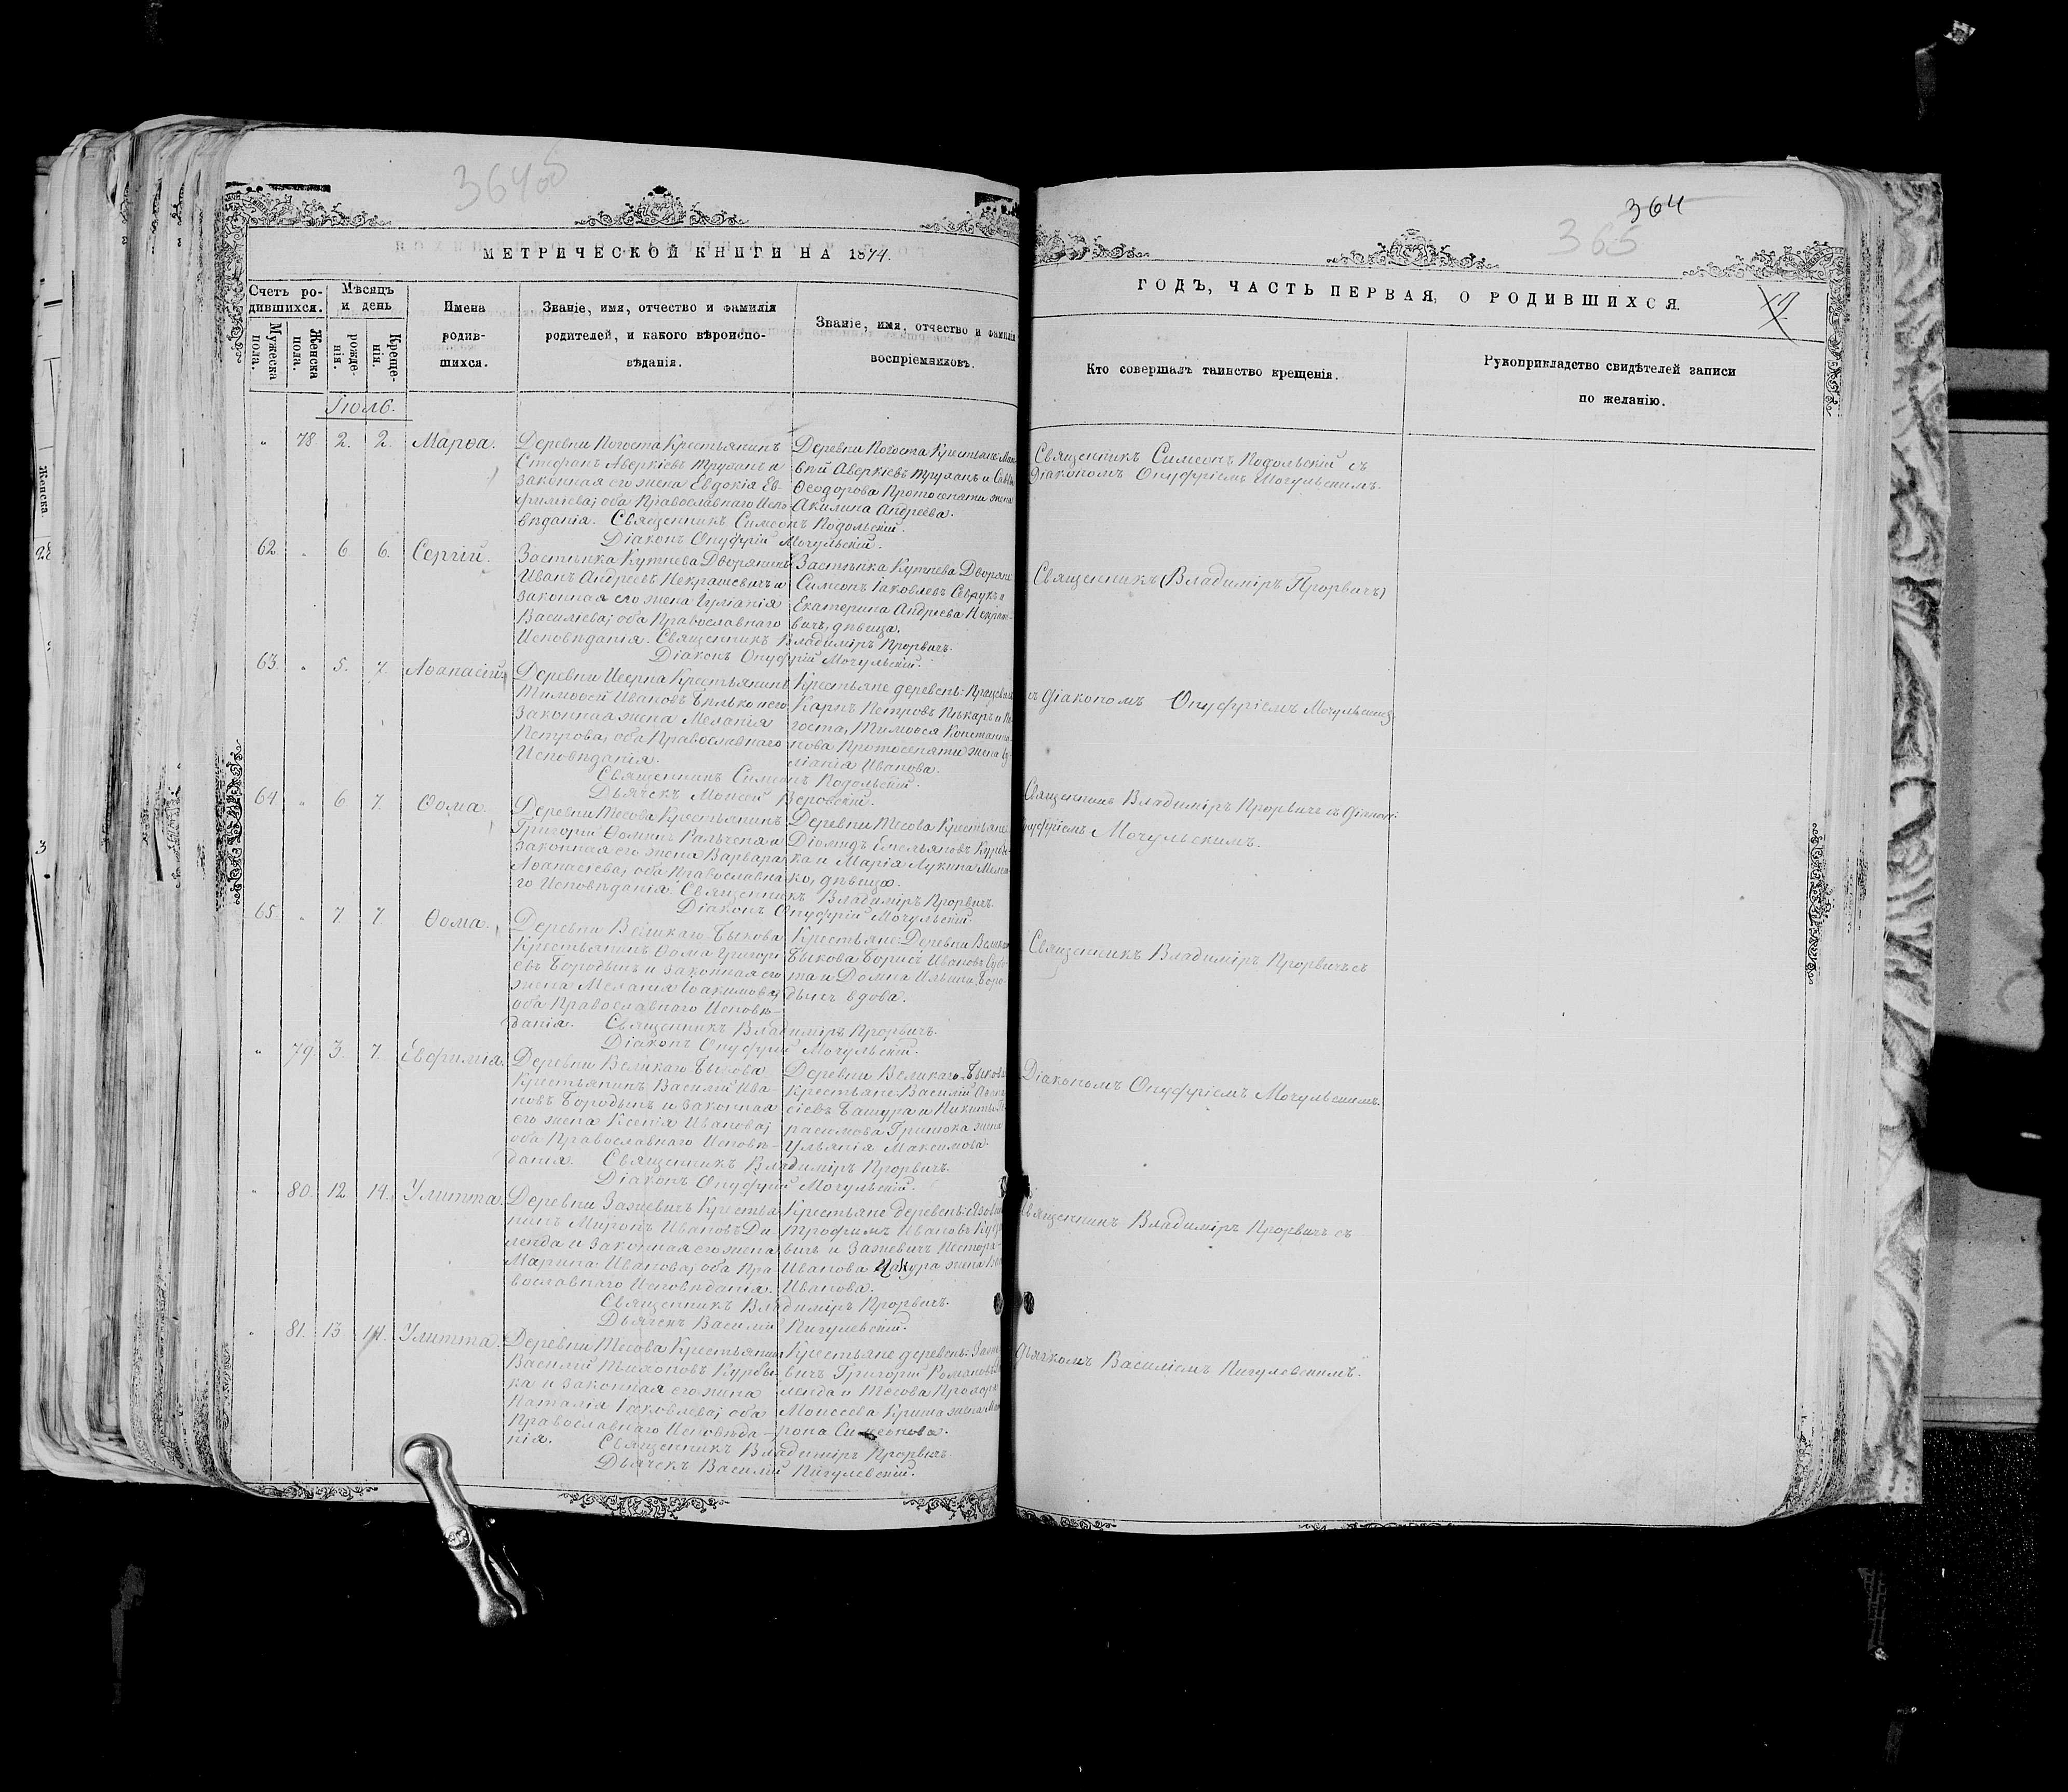 364об
МЕТРИЧЕСКОЙ КНИГИ НА 1874.
Счетъ ро-
дившихся.
Мѣсяцъ
и день
Мужеска
пола.
Женска
пола.
рожде-
нія.
Креще-
нія.
Имена
родив-
шихся.
Званіе, имя, отчество и фамилія
родителей, и какого вѣроиспо-
вѣданія.
Званіе, имя, отчество и фамилія
воспріемниковъ.
Іюль.
" 78. 2. 2. Марѳа.
Деревни Погоста Крестьянинъ
Стефанъ Аверкіевъ Труханъ и
законная его жена Евдокія Ев-
фиміева; оба Православнаго Испо-
вѣданія. Священникъ Симеонъ Подольскій.
Діаконъ Онуфрій Мочульскій.
Деревни Погоста Крестьяне
Аверкіевъ Труханъ и
Ѳеодорова Протосеняти жена
Акилина Андреева.
62. " 6 6. Сергій.
Застѣнка Кутнева Дворянинъ
Иванъ Андреевъ Некрашевичъ и
законная его жена Іуліанія
Василіева; оба Православнаго
Исповѣданія. Священникъ Владиміръ Прорвичъ.
Діаконъ Онуфрій Мочульскій.
Застѣнка Кутнева Дворяне
Симеонъ Іаковлевъ Севрукъ и
Екатерина Андреева Некраше-
вичъ, дѣвица.
63. " 5. 7. Аѳанасій.
Деревни Иserna Крестьянинъ
Тимоѳей Ивановъ Бѣлько и его
Законная жена Меланія
Петрова, оба Православнаго
Исповѣданія.
Священникъ Симеонъ Подольскій.
Дьячекъ Моисей Версвскій.
Крестьяне деревень:
Карпъ Петровъ Пѣкаръ и По-
госта, Тимоѳея Константи-
нова Протосеняти жена Іу-
ліанія Иванова.
64 " 6 7. Ѳома.
Деревни Тесова Крестьянинъ
Григорій Ѳоминъ Гальченя и
Законная его жена Варвара
Аѳанасіева, оба Православна-
го Исповѣданія. Священникъ Владиміръ Прорвичъ.
Діаконъ Онуфрій Мочульскій.
Деревни Тесова Крестьяне:
Діомидъ Емельяновъ Курбы-
ка и Марія Лукина
ко, дѣвица.
65. " 7. 7. Ѳома.
Деревни Великаго Быкова
Крестьянинъ Ѳома Григорі-
евъ Бородынъ и Законная его
жена Меланія Іоакимова;
оба Православнаго Исповѣ-
данія. Священникъ Владиміръ Прорвичъ.
Діаконъ Онуфрій Мочульскій.
Крестьяне: Деревни Великаго
Быкова Борисъ Ивановъ Субо-
та и Домна Ильина Боро-
дынъ вдова.
" 79. 3. 7. Евфимія.
Деревни Великаго Быкова
Крестьянинъ Василій Ива-
новъ Бородынъ и законная
его жена Ксенія Иванова;
оба Православнаго Исповѣ-
данія. Священникъ Владиміръ Прорвичъ.
Діаконъ Онуфрій Мочульскій.
Деревни Великаго Быкова
Крестьяне: Василій
сіевъ Башура и Никиты
расимова Гринюка жена
Ульянія Максимова.
" 80. 12. 14. Улитта.
Деревни Зажевичъ Крестья-
нинъ Миронъ Ивановъ Ди-
ленда и Законная его жена
Марина Иванова; оба Пра-
вославнаго Исповѣданія.
Священникъ Владиміръ Прорвичъ.
Дьячекъ Василій Пигулевскій.
Крестьяне деревень:
Трофимъ Ивановъ
вичъ и Зажевичъ Нестора
Иванова Цакура жена
Иванова.
" 81. 13 14. Улитта.
Деревни Тесова Крестьянинъ
Василій Тихоновъ Курбы-
ка и Законная его жена
Наталія Іаковлева; оба
Православнаго Исповѣда-
нія. Священникъ Владиміръ Прорвичъ.
Дьячекъ Василій Пигулевскій.
Крестьяне деревень: Заже-
вичъ Григорій Романовъ
ленда и Тесова
Моисеева Криша жена
Симеонова.
364
365
ГОДЪ, ЧАСТЬ ПЕРВАЯ, О РОДИВШИХСЯ.
Кто совершалъ таинство крещенія.
Рукоприкладство свидѣтелей записи
по желанію.
Священникъ Симеонъ Подольскій съ
Діакономъ Онуфріемъ Мочульскимъ.
Священникъ Владиміръ Прорвичъ
съ Діакономъ Онуфріемъ Мочульскимъ.
Священникъ Владиміръ Прорвичъ съ Діакон.
Онуфріемъ Мочульскимъ.
Священникъ Владиміръ Прорвичъ съ
Діакономъ Онуфріемъ Мочульскимъ.
Священникъ Владиміръ Прорвичъ съ
Дьячкомъ Василіемъ Пигулевскимъ.